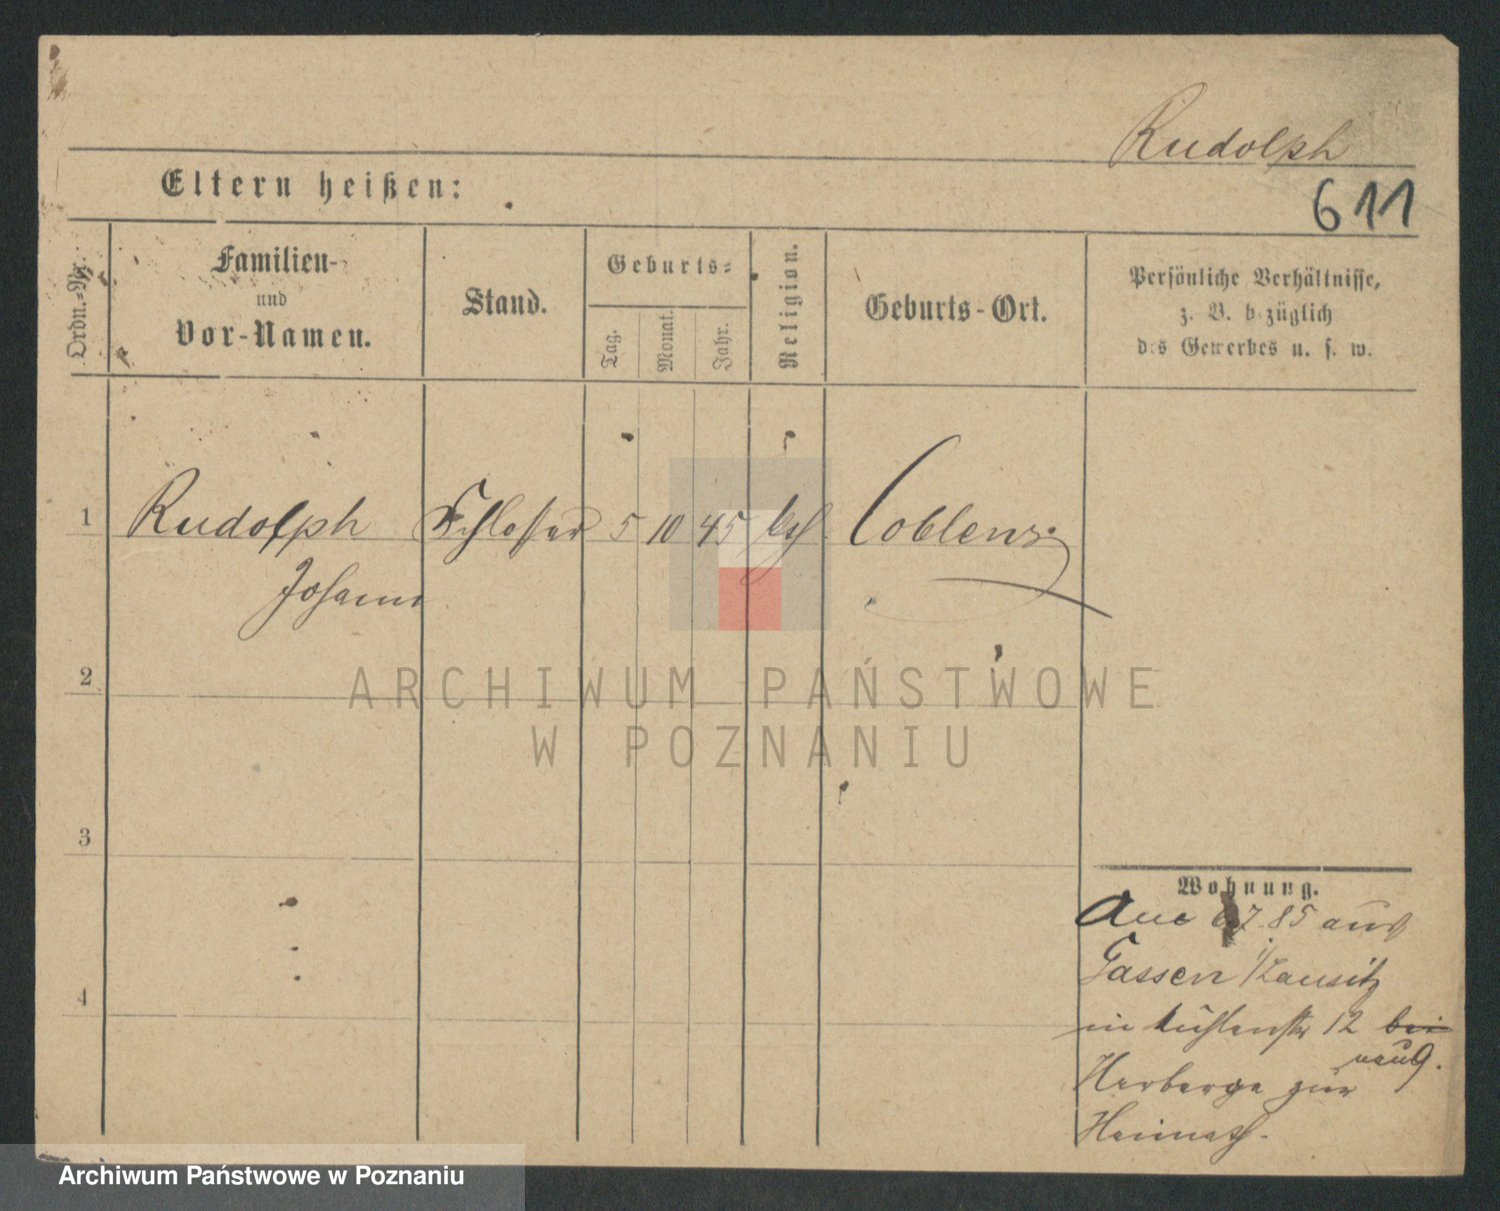 Rudolph
611
Eltern heißen:
Ordn.-Nr.
Familien-
und
Vor-Namen.
Stand.
Geburts-
Tag.
Monat.
Jahr.
Religion.
Geburts-Ort.
Persönliche Verhältnisse,
z. B. bezüglich
des Gewerbes u. s. w.
1 Rudolph Schlosser 5 10 45 Coblenz
Johann
2
3
4
ARCHIWUM PAŃSTWOWE
W POZNANIU
Wohnung.
7.85 aus
Gassen i/Lausitz
in 12 bei
Herberge zur
Heimath.
Archiwum Państwowe w Poznaniu